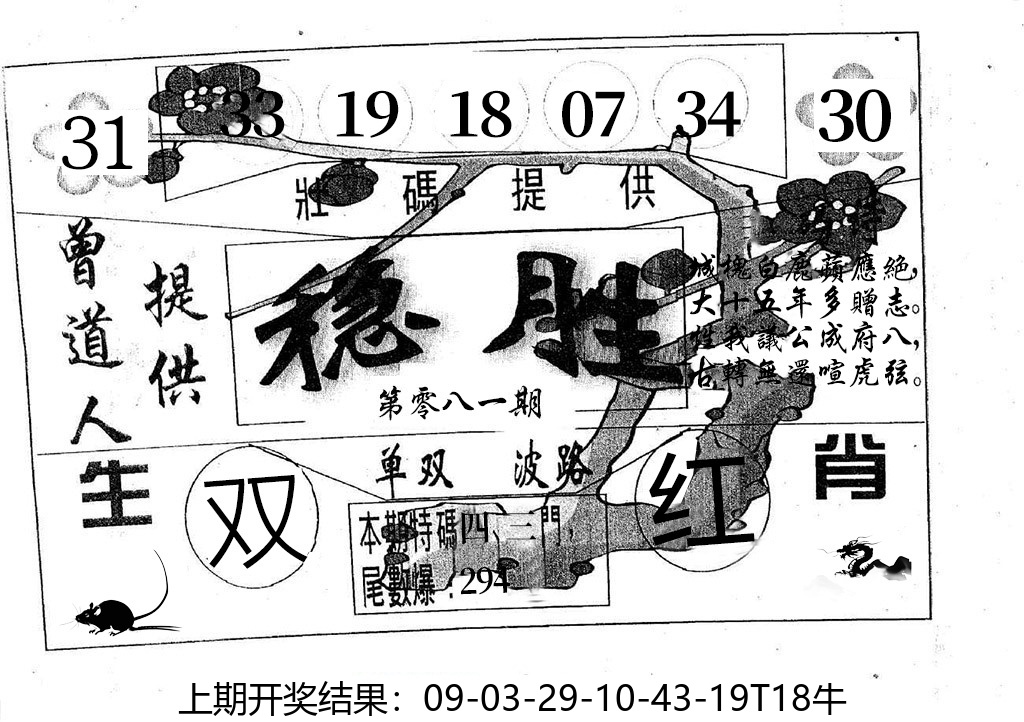 31 33 19 18 07 34 30
壯碼提供
曾道人
提供
穩胜
第零八一期
城槐白鹿蘋應絕，
大十五年多贈志。
我議公成府八，
古轉無還喧虎弦。
单双 波路
生肖
双
红
本期特碼四、三門，
尾數爆：294
上期开奖结果：09-03-29-10-43-19T18牛